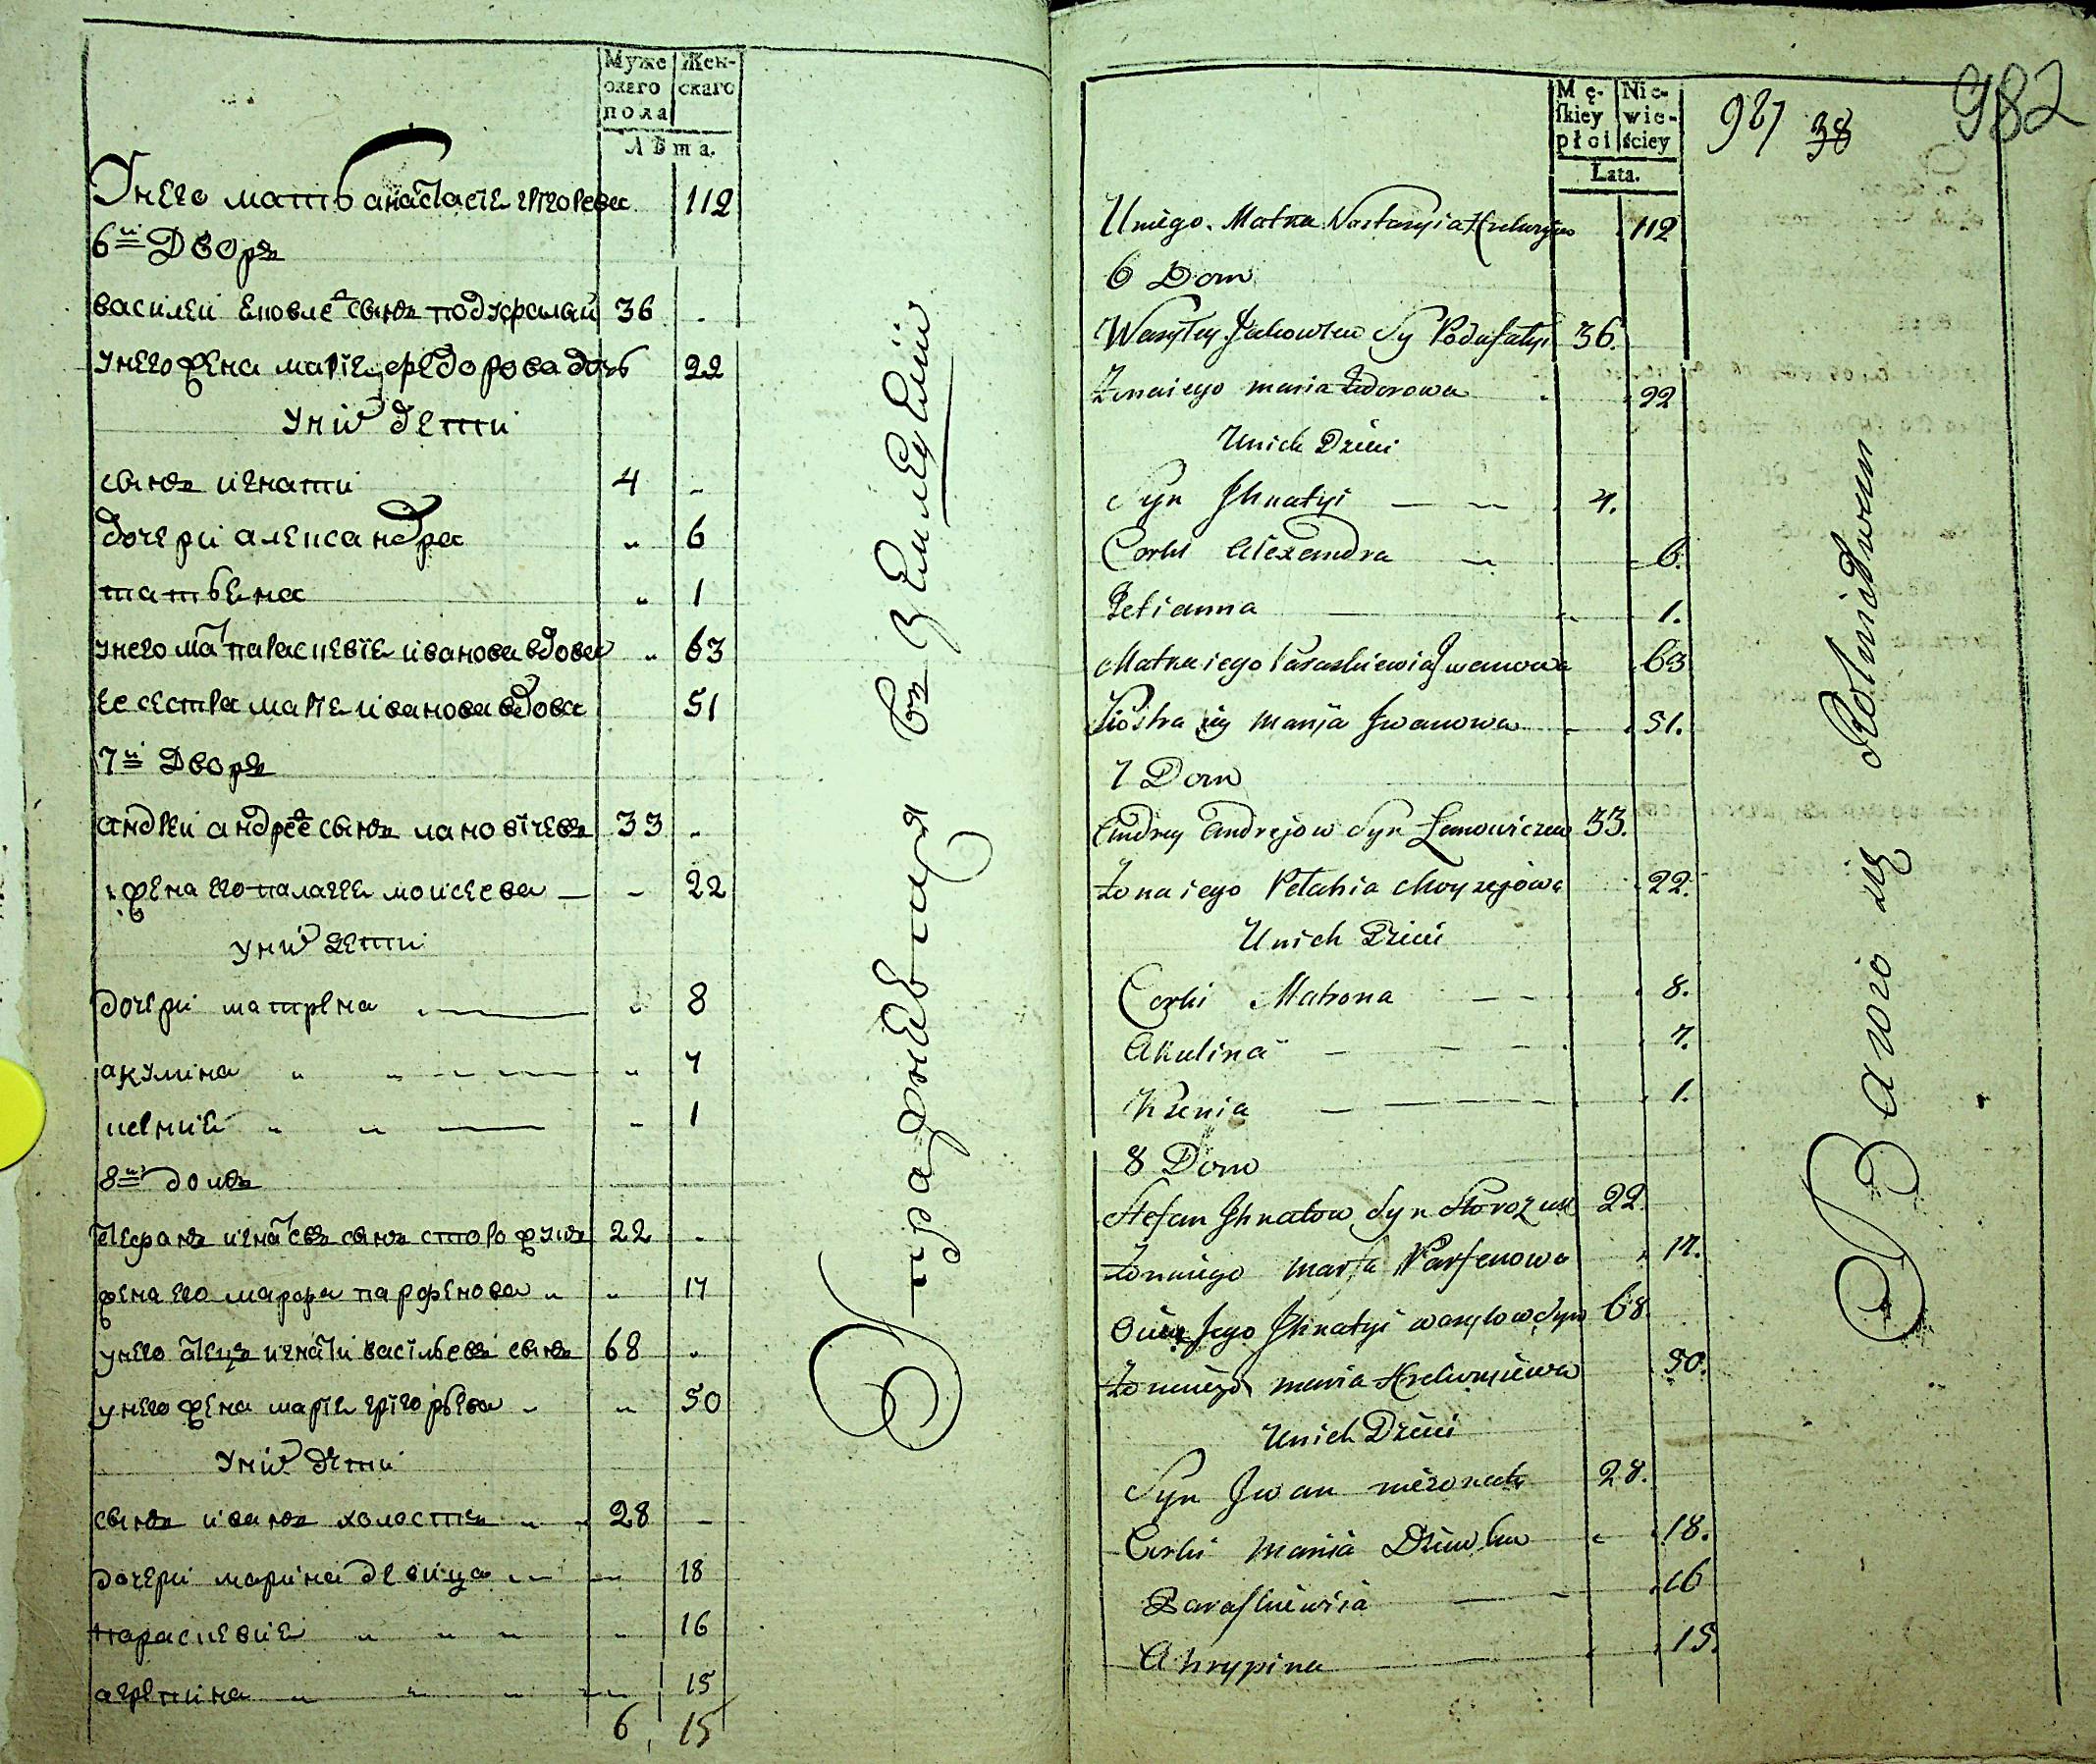 Муже Жен-
скаго скаго
пола
Лѣта.
Унего мать анастасіе григорева 112
6й Дворъ
василеи яковлевъ сынъ подуфалый 36
унего жена маріе федорова дочь 22
уних дети
сынъ игнати 4
дочери александра 6
татьяна 1
унего мать параскевіе иванова вдова 63
ее сестра маріе иванова вдова 51
7й Дворъ
андреи андреевъ сынъ лановичевъ 33
жена его палагея моисеева 22
уних дети
дочери матрена 8
акулина 4
ксения 1
8й домъ
стефанъ игнатевъ сынъ сторожукъ 22
жена его марфа парфенова 17
унего атецъ игнати васильевъ сынъ 68
унего жена маріе григорьева 50
уних дети
сынъ иванъ холостъ 28
дочери марина девица 18
параскевия 16
агрепина 15
6 15
упражневиця въ земледелии
Mę- Nie-
ſkiey wie-
płci ściey
Lata.
927 38 982
Uniego Matka Nastasyia Hrehorjiow 112
6 Dom
Wasyley Jakowlew Sy Podufatyi 36.
Żonaiego maria Fedorowa 22
Unich Dzieci
Syn Jhnatyi 4.
Corki Alexandra 6.
Tetianna 1.
Matka iego Paraskiewia Jwanowa 63
Siostra iey Marija Jwanowa 51.
7 Dom
Andrey Andrejow Syn Lanowiczew 33.
Żona iego Pelahia Moyzejowa 22.
Unich Dzieci
Corki Matrona 8.
Akulina 4.
Ksenia 1.
8 Dom
Stefan Jhnatow Syn Storożuk 22.
Żonaiego Marfa Parfenowa 17.
Ociec Jego Jhnatyi wasylow Syn 68
Żonaiego maria Hrehoriiewa 50.
Unich Dzieci
Syn Jwan nieżonaty 28.
Corki Maria Dziewka 18.
Paraſkiewia 16
Ahrypina 15.
Bawio się Rolnictwem